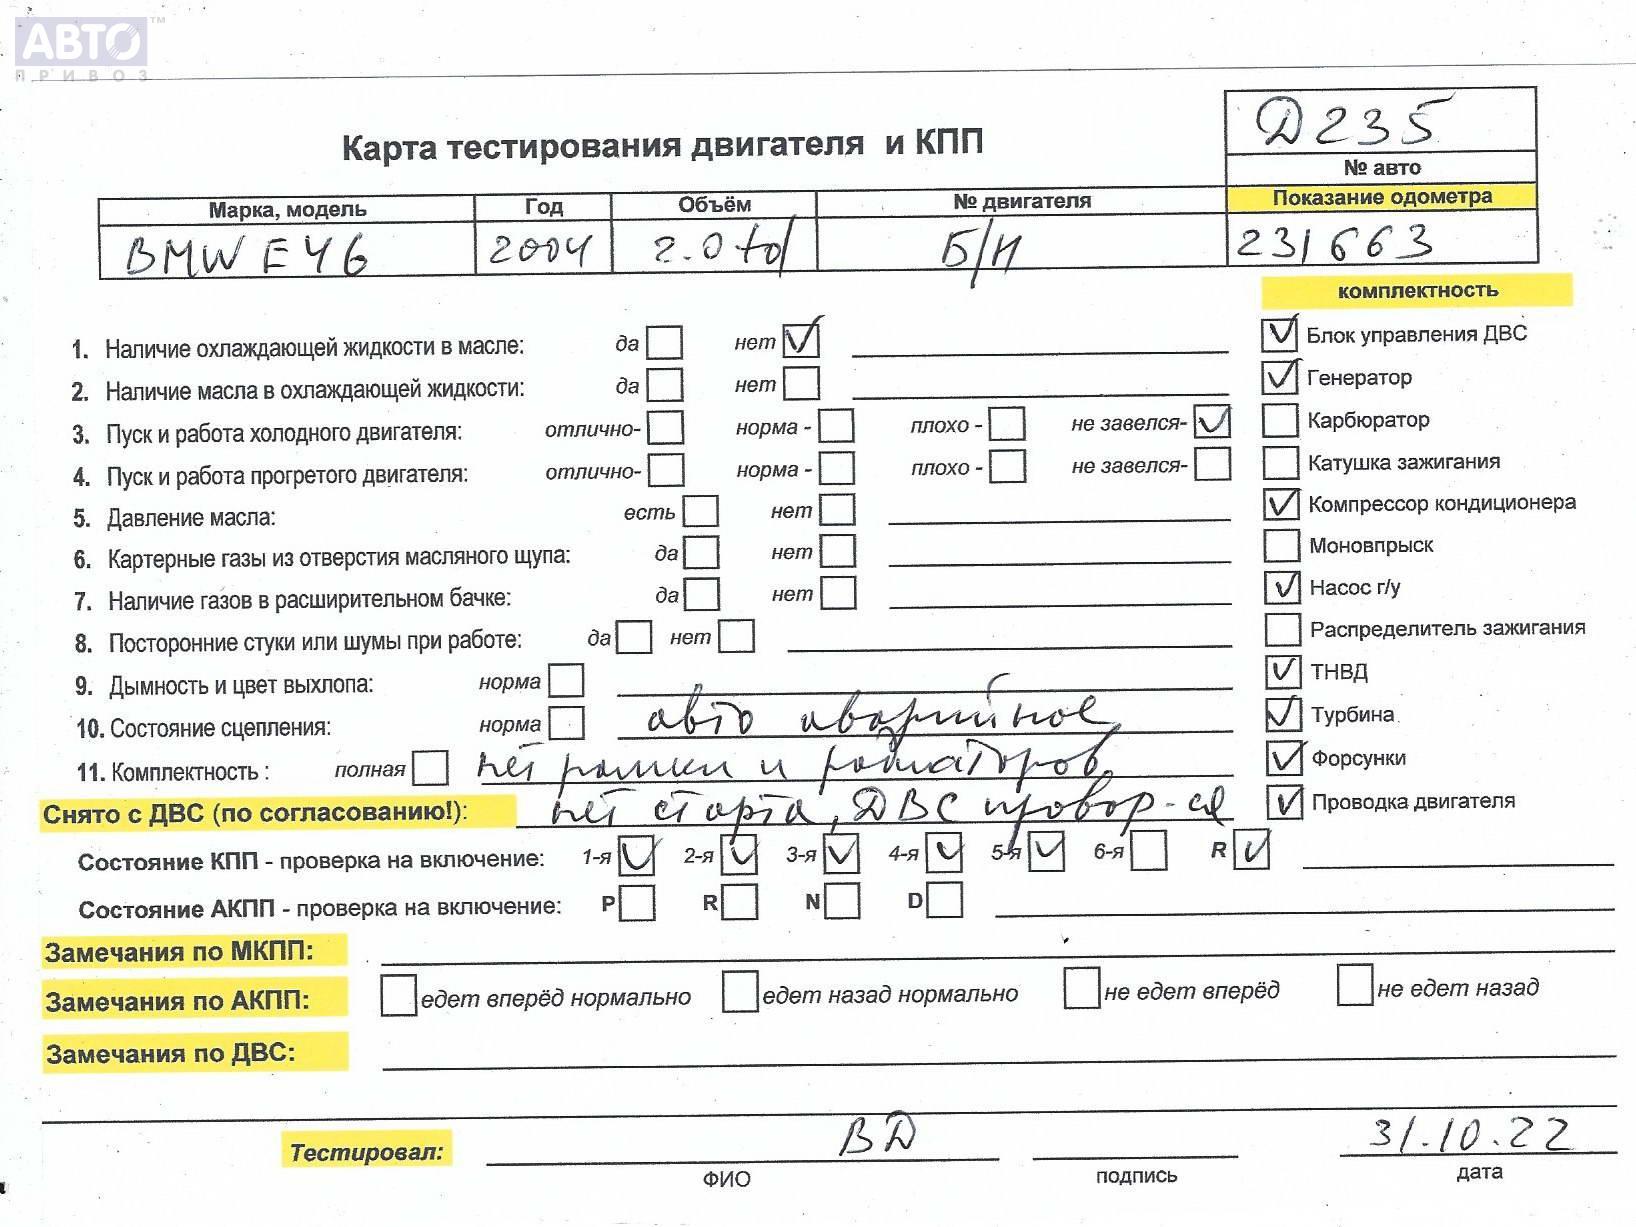 АВТО™
ПРИВОЗ
Д235
Карта тестирования двигателя и КПП
№ авто
Марка, модель Год Объём № двигателя Показание одометра
BMW E46 2004 2.0 td Б/Н 231663
комплектность
1. Наличие охлаждающей жидкости в масле: да нет ✓ ✓ Блок управления ДВС
2. Наличие масла в охлаждающей жидкости: да нет ✓ Генератор
3. Пуск и работа холодного двигателя: отлично- норма - плохо - не завелся- ✓ Карбюратор
4. Пуск и работа прогретого двигателя: отлично- норма - плохо - не завелся- Катушка зажигания
5. Давление масла: есть нет ✓ Компрессор кондиционера
6. Картерные газы из отверстия масляного щупа: да нет Моновпрыск
7. Наличие газов в расширительном бачке: да нет ✓ Насос г/у
8. Посторонние стуки или шумы при работе: да нет Распределитель зажигания
9. Дымность и цвет выхлопа: норма ✓ ТНВД
10. Состояние сцепления: норма авто аварийное, ✓ Турбина
11. Комплектность : полная нет рамки и радиаторов, ✓ Форсунки
Снято с ДВС (по согласованию!): нет старта, ДВС провор-ся ✓ Проводка двигателя
Состояние КПП - проверка на включение: 1-я ✓ 2-я ✓ 3-я ✓ 4-я ✓ 5-я ✓ 6-я R ✓
Состояние АКПП - проверка на включение: P R N D
Замечания по МКПП:
Замечания по АКПП: едет вперёд нормально едет назад нормально не едет вперёд не едет назад
Замечания по ДВС:
Тестировал: ВД 31.10.22
ФИО подпись дата